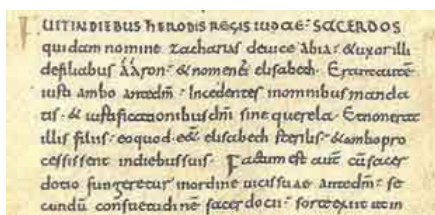 FUIT IN DIEBUS HERODIS REGIS IUDAE: SACERDOS
quidam nomine zacharias de uice abia: & uxor illi
de filiabus aaron: & nomen ei elisabeth. Erant autē
iusti ambo ante dm̄: Incedentes in omnibus manda
tis: & iustificationibus dn̄i sine querela. Et non erat
illis filius: eo quod eēt elisabeth sterilis: & ambo pro
cessissent in diebus suis. Factum est autē cū sacer
dotio fungeretur in ordine uicis suae ante dm̄: se
cundū consuetudinē sacerdotii: sorte exiit ut in